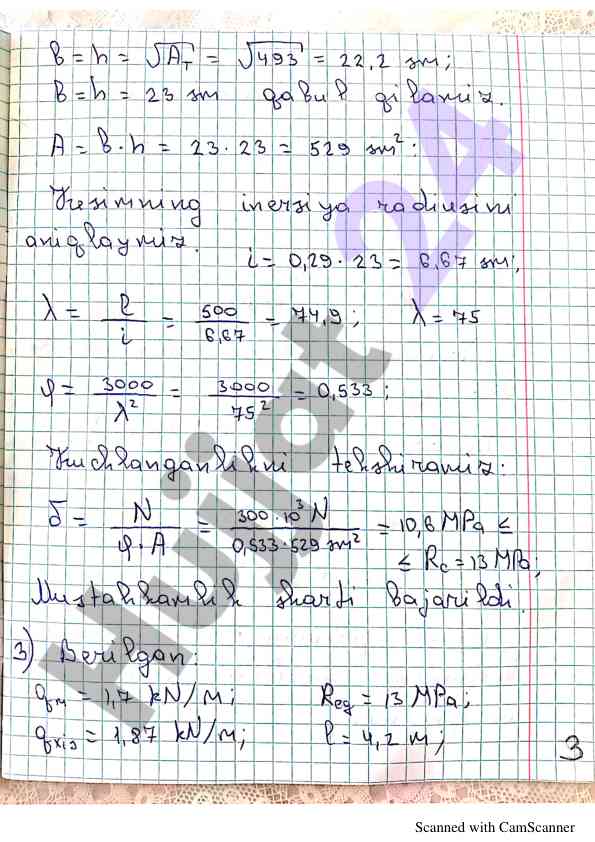 b = h = √A_T = √493 = 22,2 sm;
b = h = 23 sm qabul qilamiz.
A = b · h = 23 · 23 = 529 sm²:
Kesimning inersiya radiusini
aniqlaymiz.
i = 0,29 · 23 = 6,67 sm;
λ = l/i = 500/6,67 = 74,9; λ = 75
φ = 3000/λ² = 3000/75² = 0,533;
Kuchlanganlikni tekshiramiz:
σ = N/(φ·A) = 300·10³ N/(0,533·529 sm²) = 10,6 MPa ≤
≤ R_c = 13 MPa;
Mustahkamlik sharti bajarildi.
3) Berilgan:
q_m = 1,7 kN/m; R_eg = 13 MPa;
q_xis = 1,87 kN/m; l = 4,2 m;
3
Hujjat 24
Scanned with CamScanner